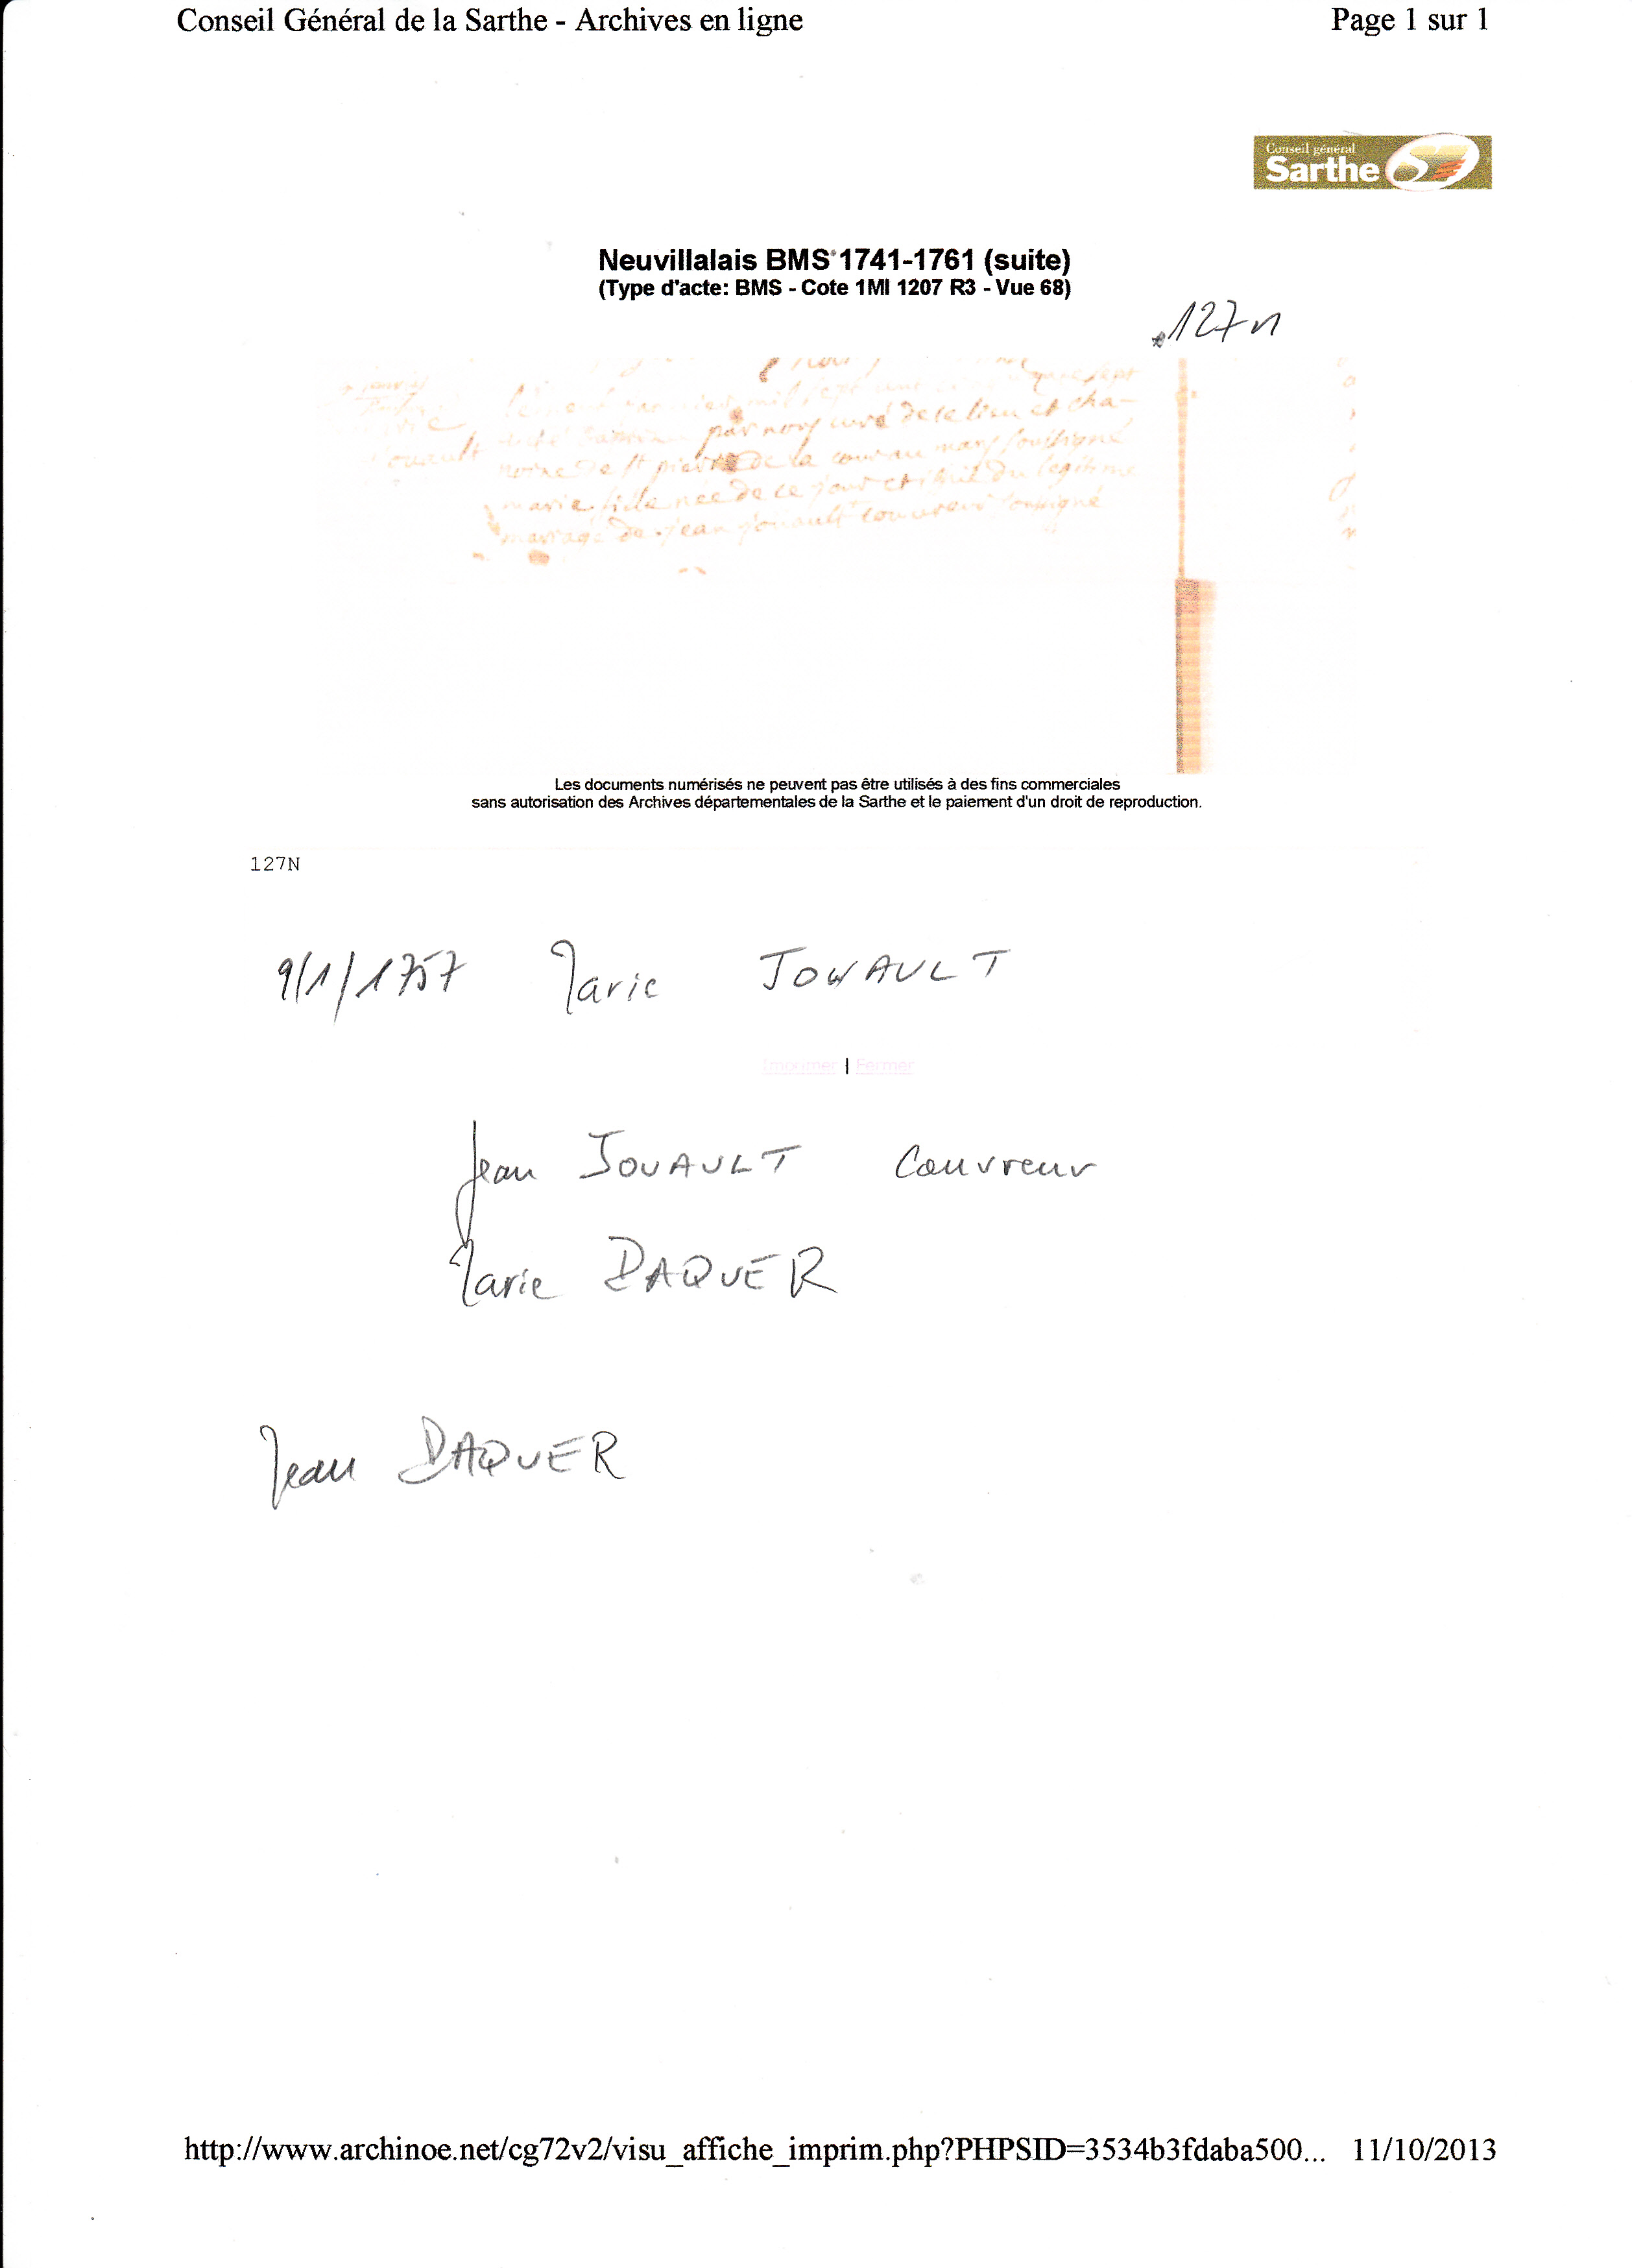 Conseil Général de la Sarthe - Archives en ligne Page 1 sur 1
Conseil général
Sarthe
Neuvillalais BMS 1741-1761 (suite)
(Type d'acte: BMS - Cote 1MI 1207 R3 - Vue 68)
127n
mil sept
par nous curé de ce lieu et cha-
noine de st pierre de la cour au mans soussigné
marie fille née de ce jour et du legitime
mariage de jean jouault couvreur soussigné
Les documents numérisés ne peuvent pas être utilisés à des fins commerciales
sans autorisation des Archives départementales de la Sarthe et le paiement d'un droit de reproduction.
127N
9/1/1757 Marie JOUAULT
Imprimer | Fermer
Jean JOUAULT Couvreur
Marie DAQUER
Jean DAQUER
http://www.archinoe.net/cg72v2/visu_affiche_imprim.php?PHPSID=3534b3fdaba500... 11/10/2013